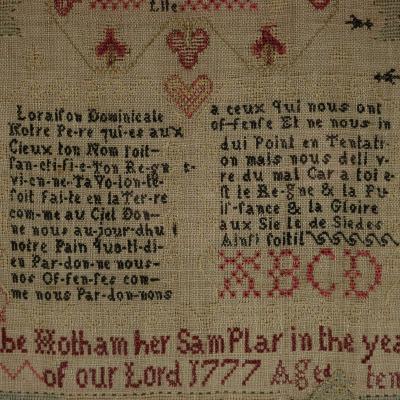 Life
Loraison Dominicale
Notre Pe-re qui-es aux
Cieux ton Nom soit-
san-cti-fi-e-Ton Re-gne t-
vi-en-ne-Ta Vo-lon-te-
soit fai-te en la Ter-re
com-me au Ciel Don-
ne nous au-jour-dhu i
notre Pain quo-ti-di-
en Par-don-ne nous-
nos Of-fen-ses com-
me nous Par-don-nons
a ceux qui nous ont
of-fense Et ne nous in
dui Point en Tentati-
on mais nous deli v-
re du mal Car a toi e-
st le Re-gne & la Pu-
is-sance & la Gloire
aux Sie le de Siedes
Ainsi soitil
ABCD
be Hotham her Sam Plar in the yea
of our Lord 1777 Aged ten